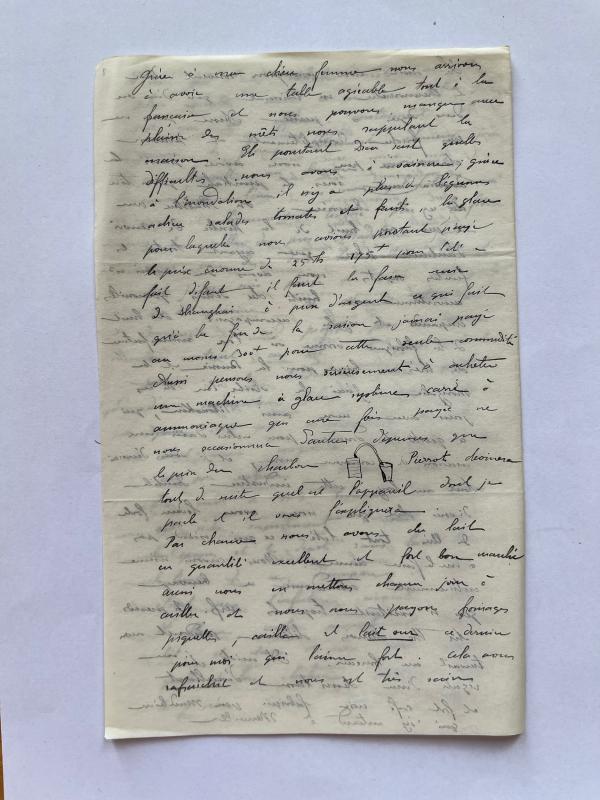 Grâce à ma chère femme nous arrivons
à avoir une table agréable tout à la
française et nous pouvons manger avec
plaisir des mêts nous rappelant la
maison. Et pourtant Dieu sait quelles
difficultés nous avons à vaincre ; grâce
à l'inondation il n'y a plus de légumes
adieu salades tomates et fruits la glace
pour laquelle nous avions pourtant payé
le prix énorme de 175 pour l'été
fait défaut il faut la faire venir
de Shanghai à prix d'argent ce qui fait
qu'à la fin de la saison j'aurai payé
au moins 300 pour cette seule commodité
Aussi pensons nous sérieusement à acheter
une machine à glace système carré à
ammoniaque qui une fois payée ne
nous occasionnera d'autres dépenses que
le prix du charbon Pierrot devinera
tout de suite quel est l'appareil dont je
parle et il vous l'expliquera
Par chance nous avons du lait
en quantité excellent et fort bon marché
aussi nous en mettons chaque jour à
cailler et nous nous payons fromages
piquettes, caillé et lait sur ce dernier
pour moi qui l'aime fort. cela vous
rafraichit et nous est très sain